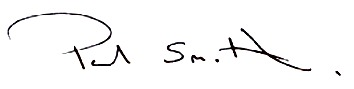 Paul Smith.